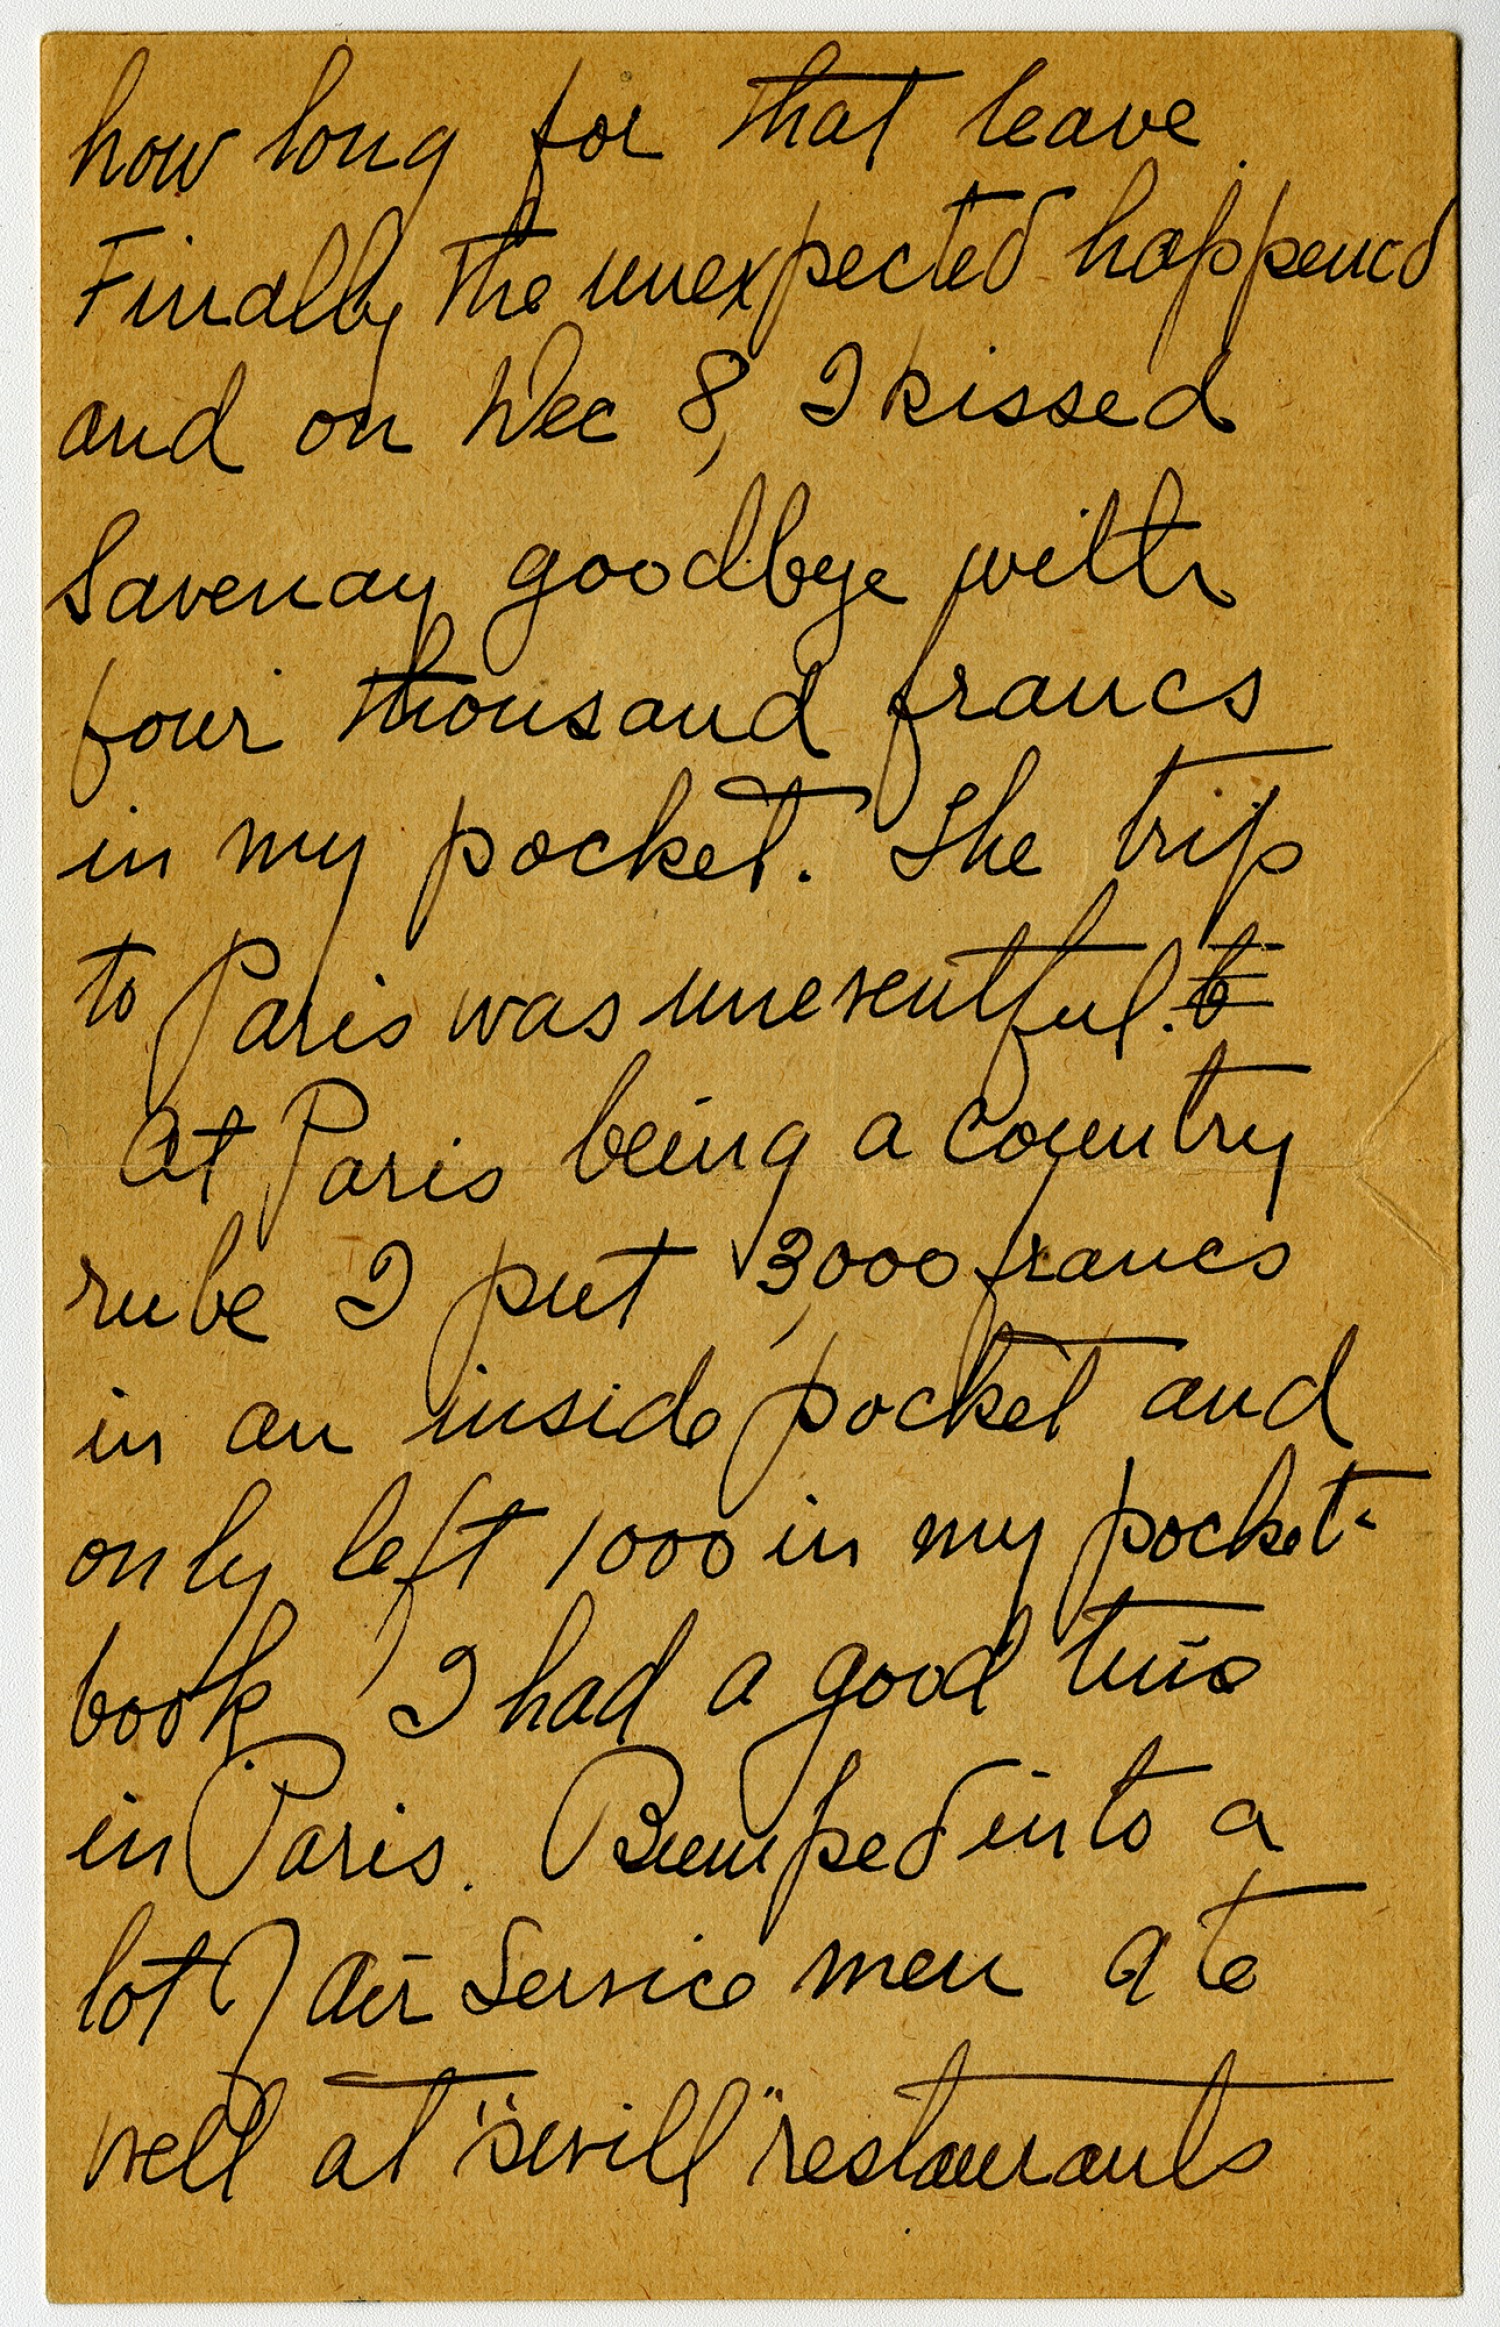 how long for that leave.
Finally the unexpected happened
and on Dec 8, I kissed
Savenay goodbye with
four thousand francs
in my pocket. The trip
to Paris was uneventful. to
At Paris being a country
rube I put 3,000 francs
in an inside pocket and
only left 1000 in my pocket-
book. I had a good time
in Paris. Bumped into a
lot of Air Service men ate
well at "swell" restaurants